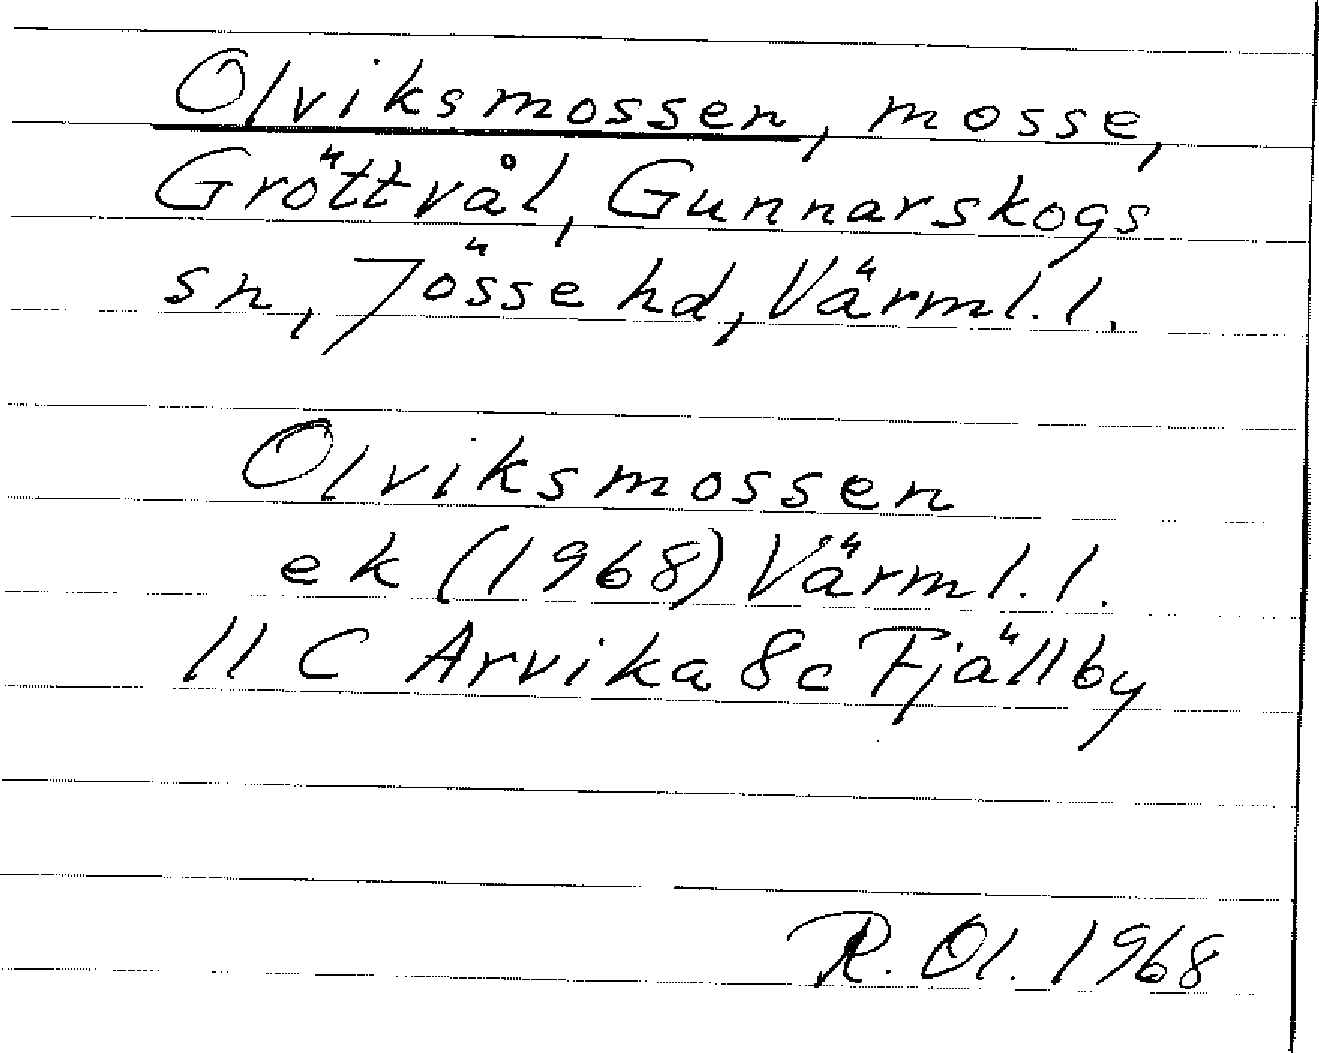 Olviksmossen, mosse,
Gröttvål, Gunnarskogs
sn, Jösse hd, Värml. l.
Olviksmossen
ek (1968) Värml. l.
11 C Arvika 8c Fjällby
R. Ol. 1968